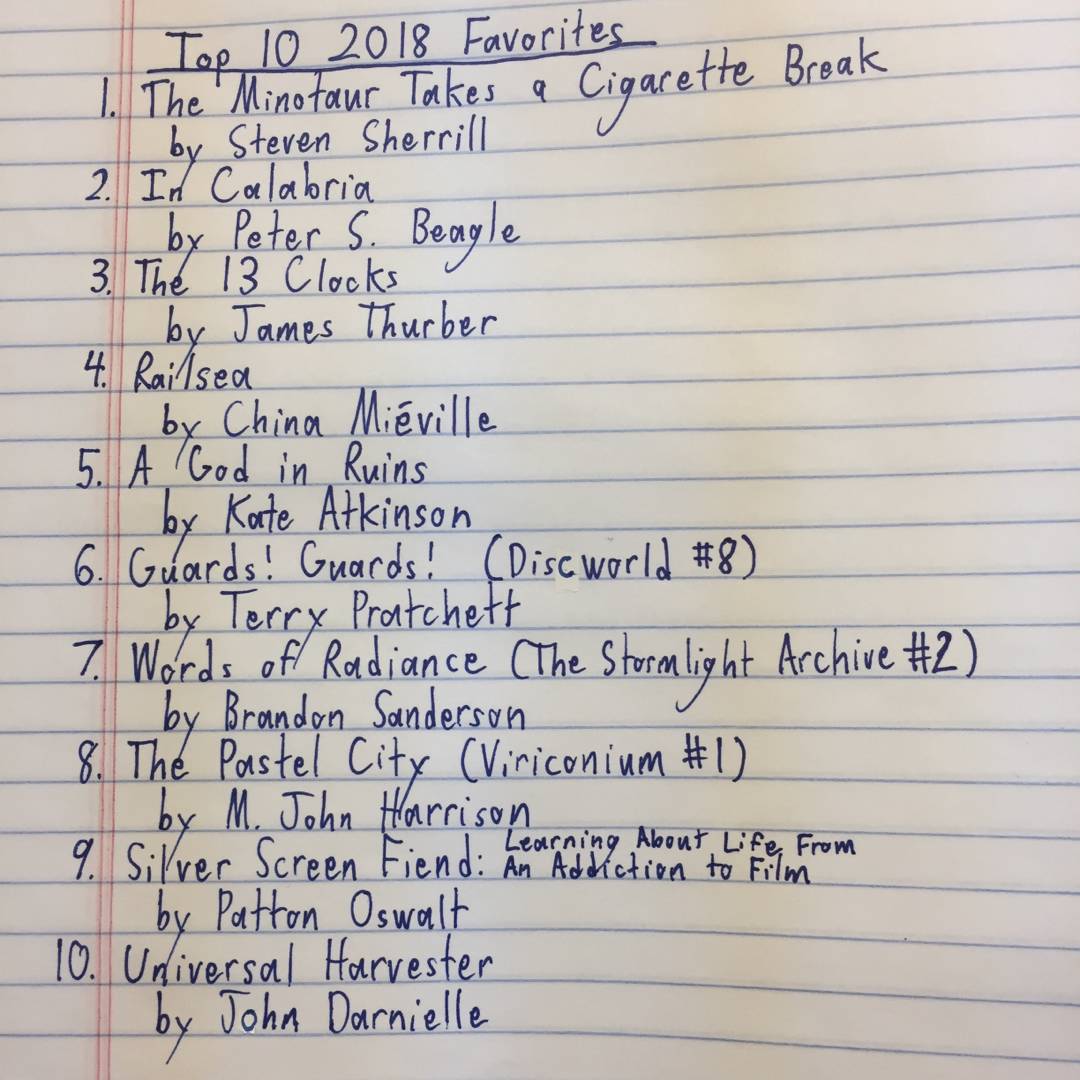 Top 10 2018 Favorites
1. The Minotaur Takes a Cigarette Break
by Steven Sherrill
2. In Calabria
by Peter S. Beagle
3. The 13 Clocks
by James Thurber
4. Railsea
by China Miéville
5. A God in Ruins
by Kate Atkinson
6. Guards! Guards! (Discworld #8)
by Terry Pratchett
7. Words of Radiance (The Stormlight Archive #2)
by Brandon Sanderson
8. The Pastel City (Viriconium #1)
by M. John Harrison
9. Silver Screen Fiend: Learning About Life From
An Addiction to Film
by Patton Oswalt
10. Universal Harvester
by John Darnielle